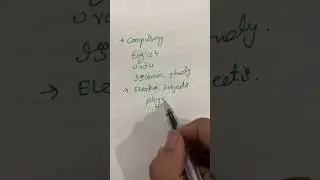 → Compulsory
English
Urdu
Islamic study
→ Elective subjects.
phys